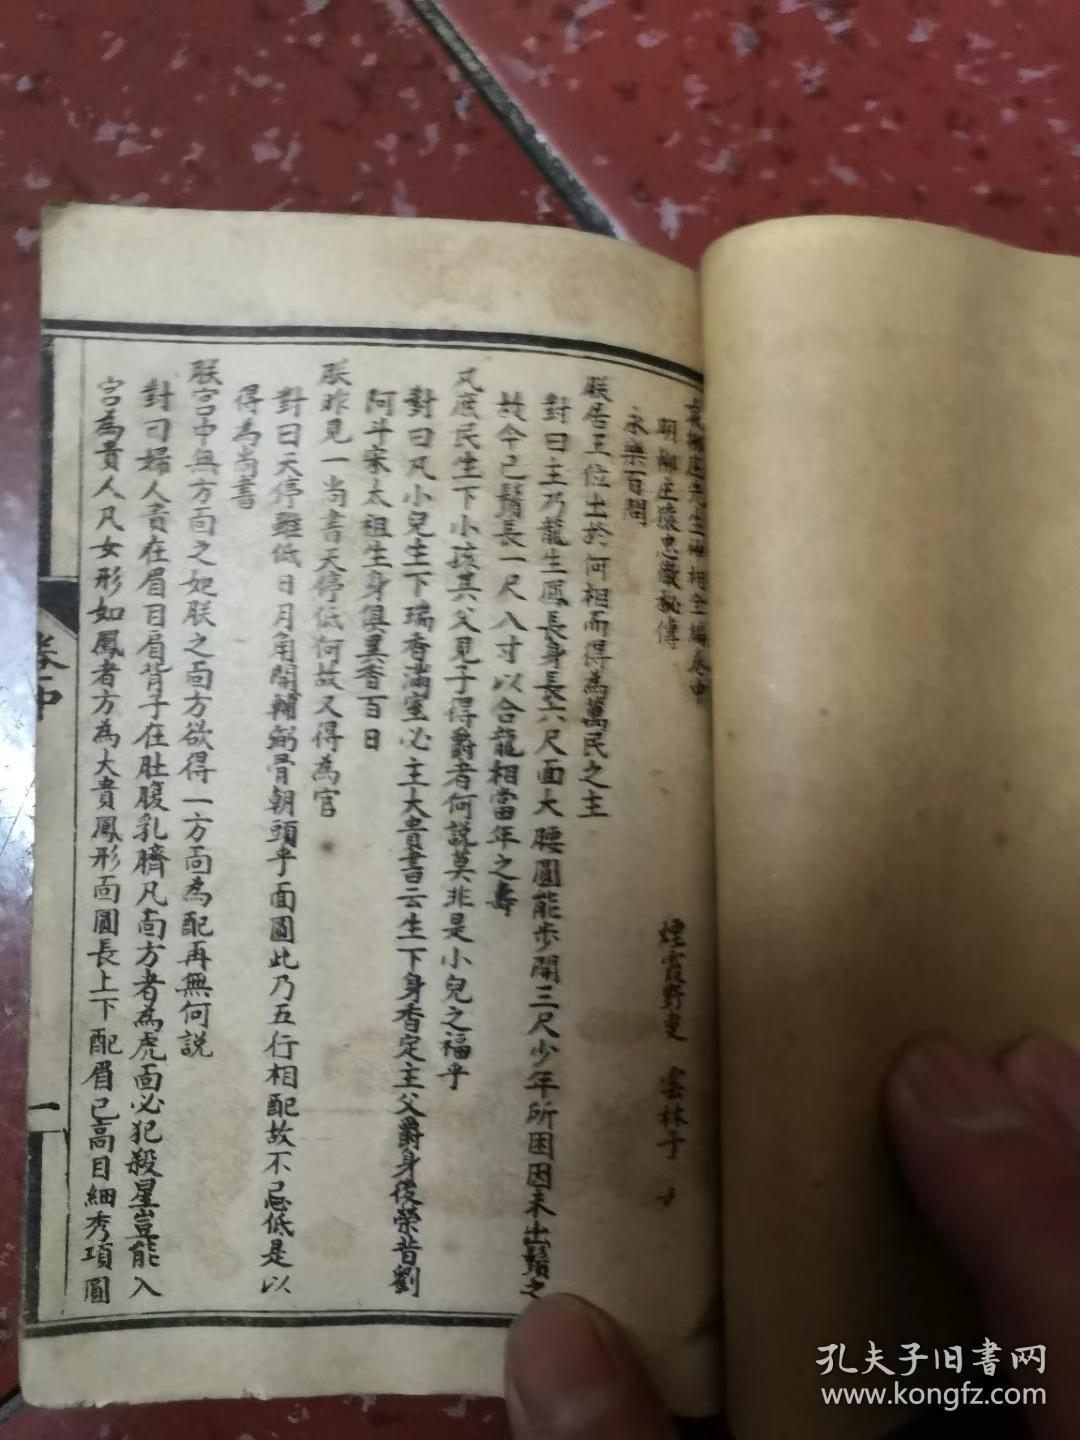 袁柳庄先生神相全編卷中
明柳庄袁忠徹秘傳　煙霞野叟　雲林子
永樂百問
朕居王位出於何相而得為萬民之主
對曰主乃龍生鳳長身長六尺面大腰圓能步開三尺少年所困因未出鬚之
故今已鬚長一尺八寸以合龍相當年之壽
凡庶民生下小孩其父見子得爵者何說莫非是小兒之福乎
對曰凡小兒生下瑞香滿室必主大貴書云生下身香定主父爵身後榮昔劉
阿斗宋太祖生身俱異香百日
朕昨見一尚書天停低何故又得為官
對曰天停雖低日月角開輔弼骨朝頭乎面圓此乃五行相配故不忌低是以
得為尚書
朕宮中無方面之妃朕之面方欲得一方面為配再無何説
對曰婦人貴在眉目肩背子在肚腹乳臍凡面方者為虎面必犯殺星豈能入
宮為貴人凡女形如鳳者方為大貴鳳形面圓長上下配眉已高目細秀項圓
卷中
一
孔夫子旧書网
www.kongfz.com